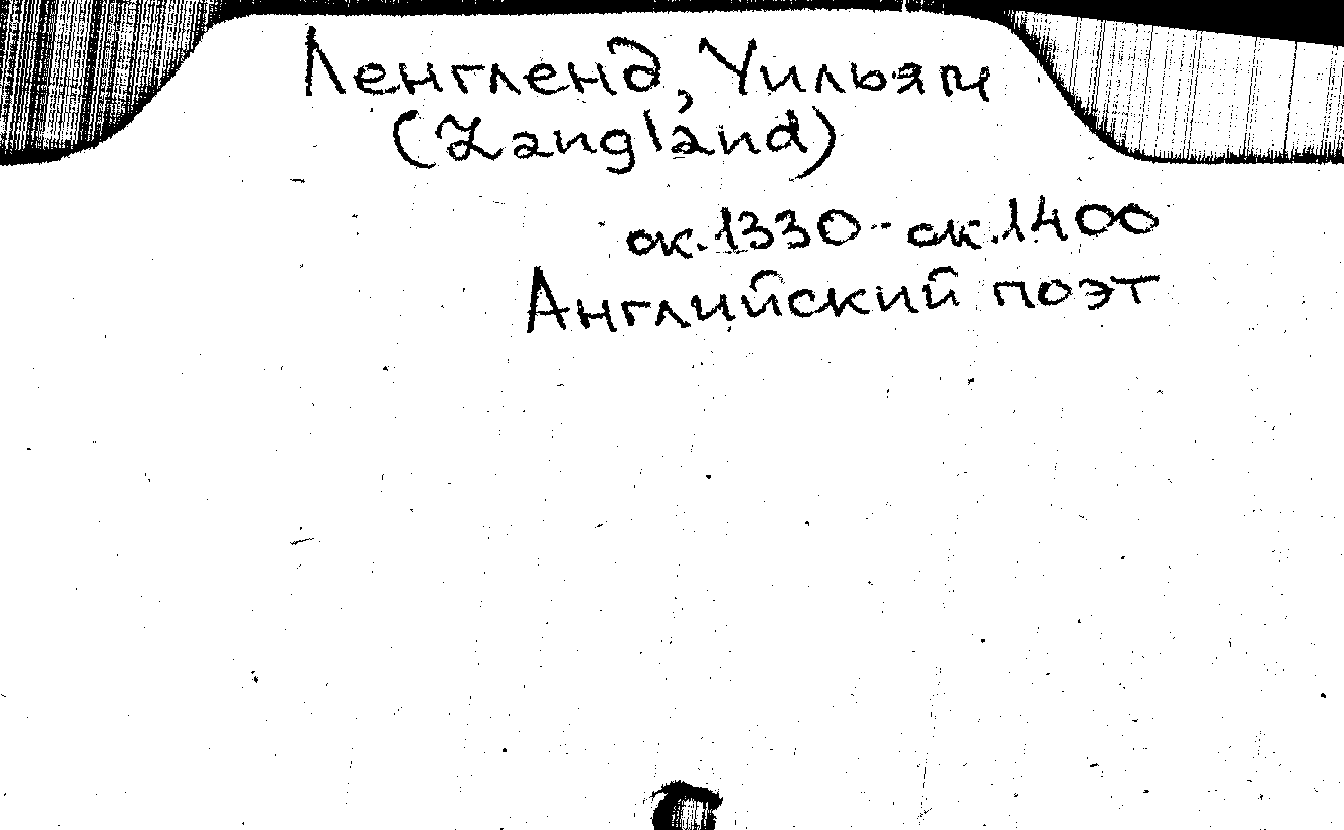 Ленгленд, Уильям
(Langland)
ок. 1330 - ок. 1400
Английский поэт